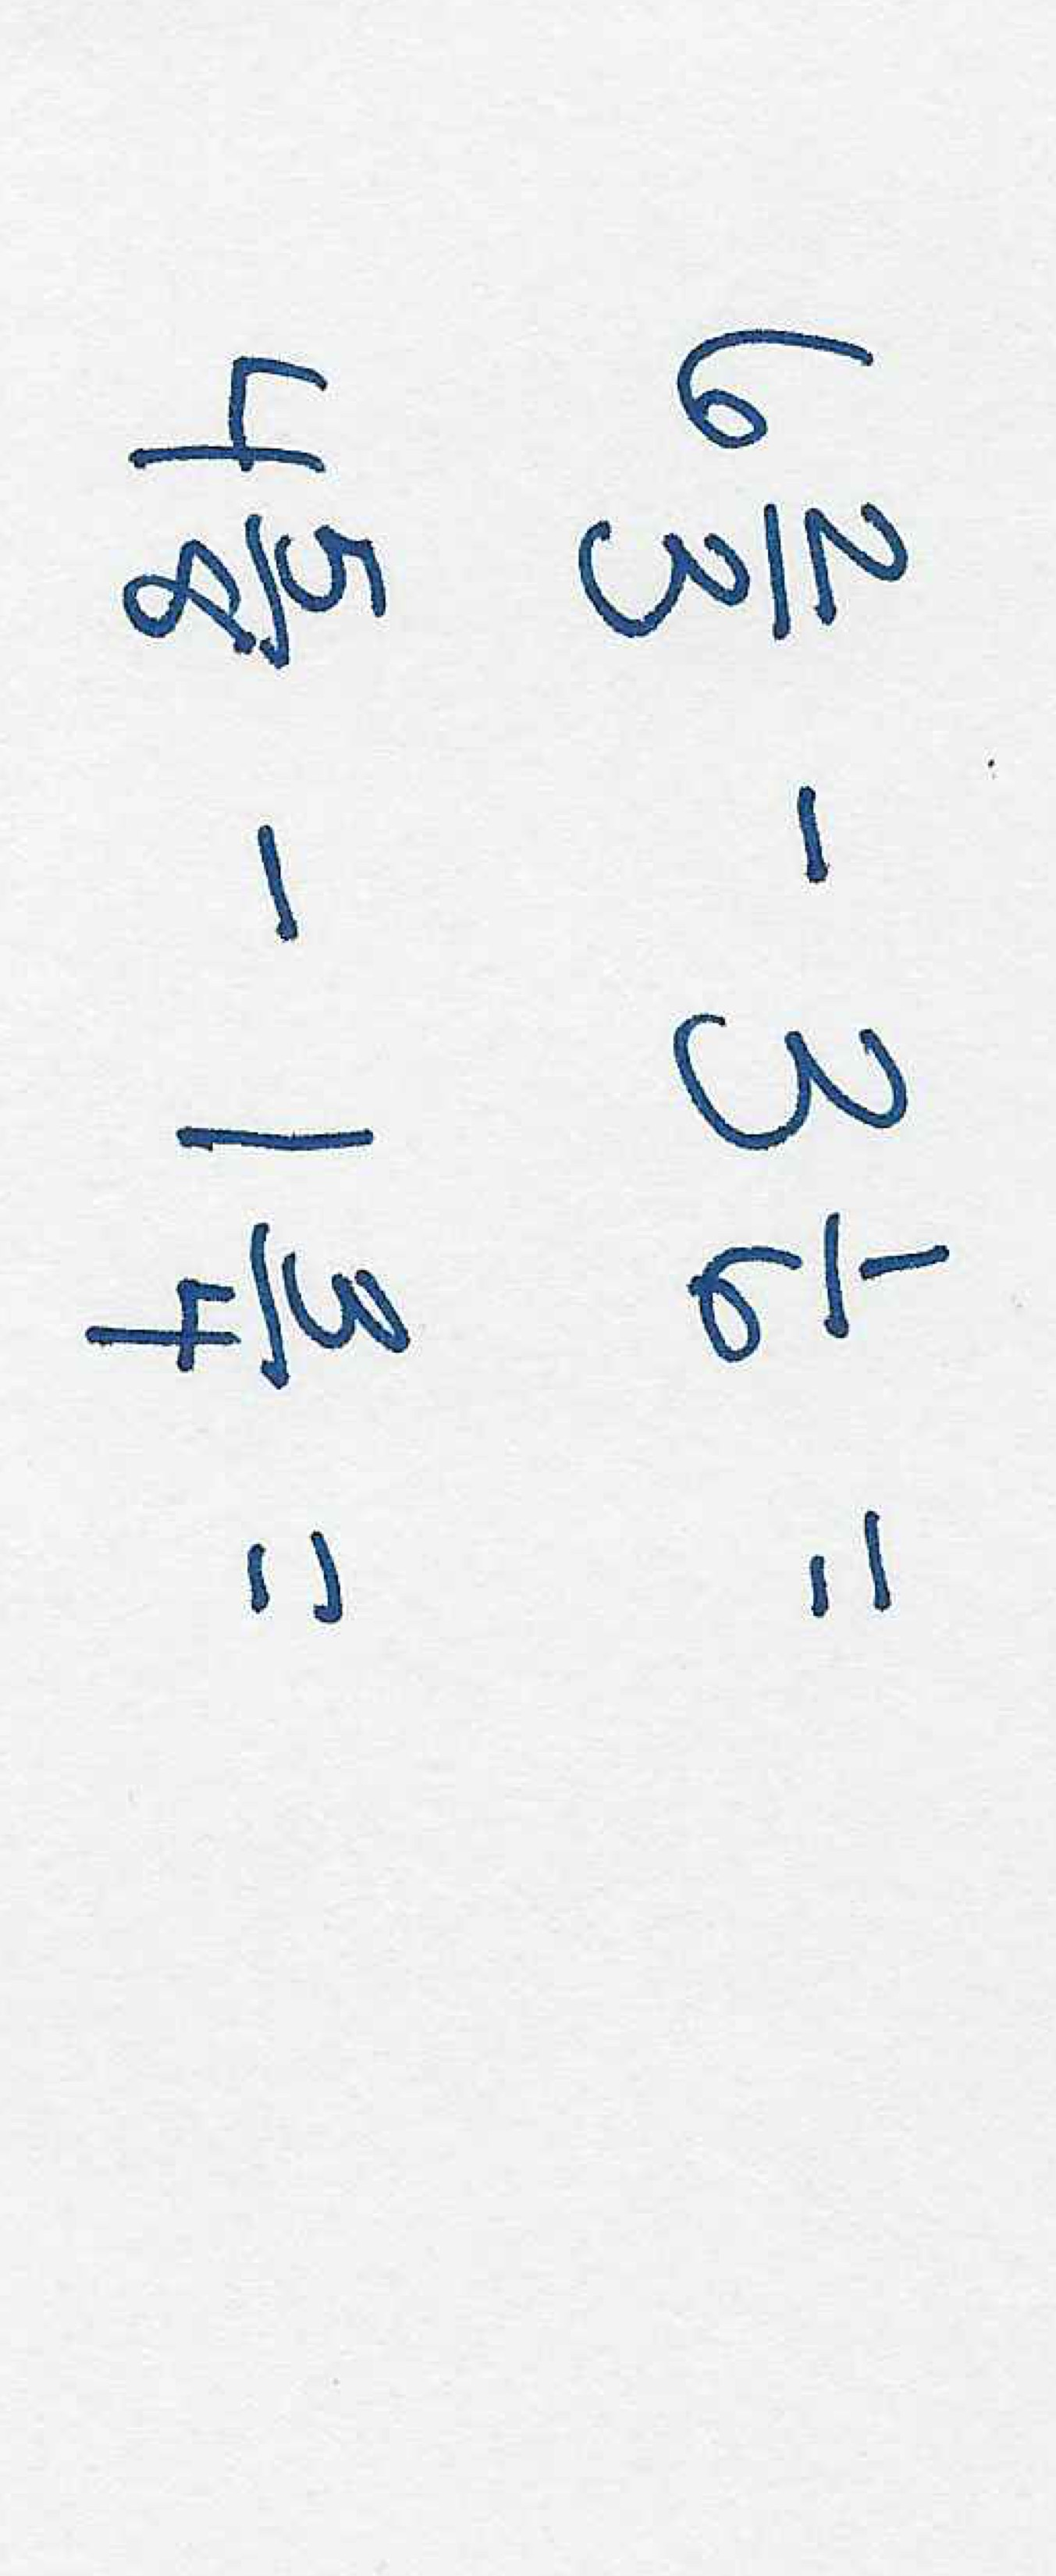 6 2/3 - 3 1/6 =
4 5/8 - 1 3/4 =